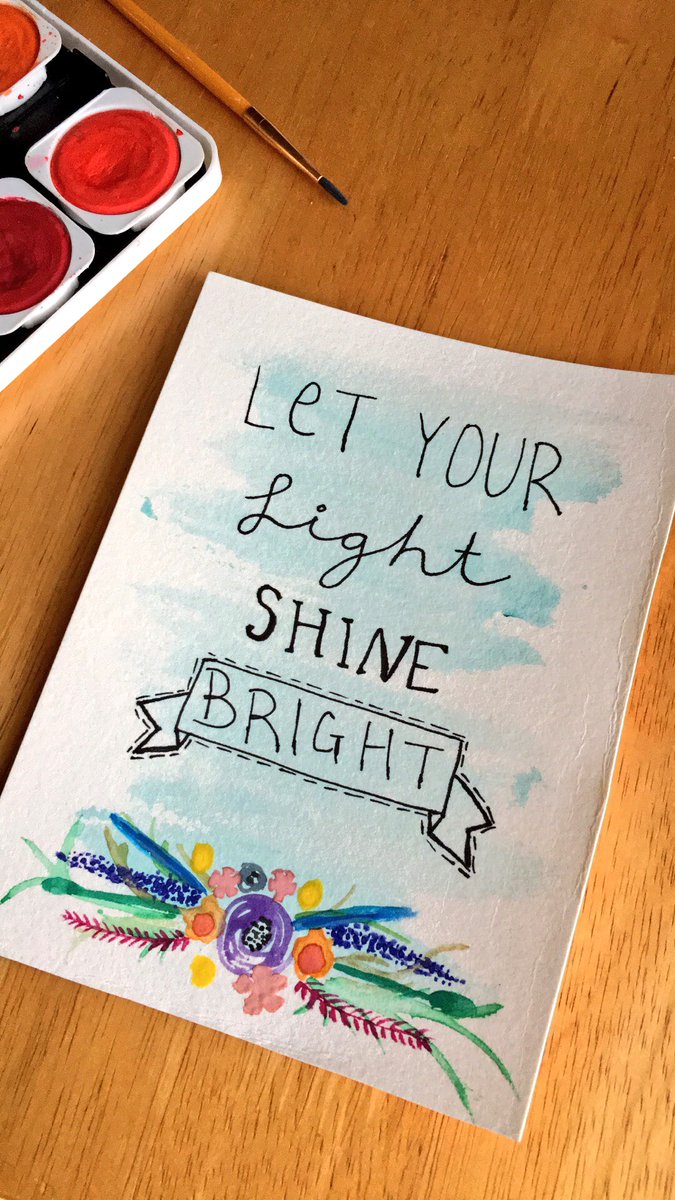 LeT YOUR
Light
SHINE
BRIGHT